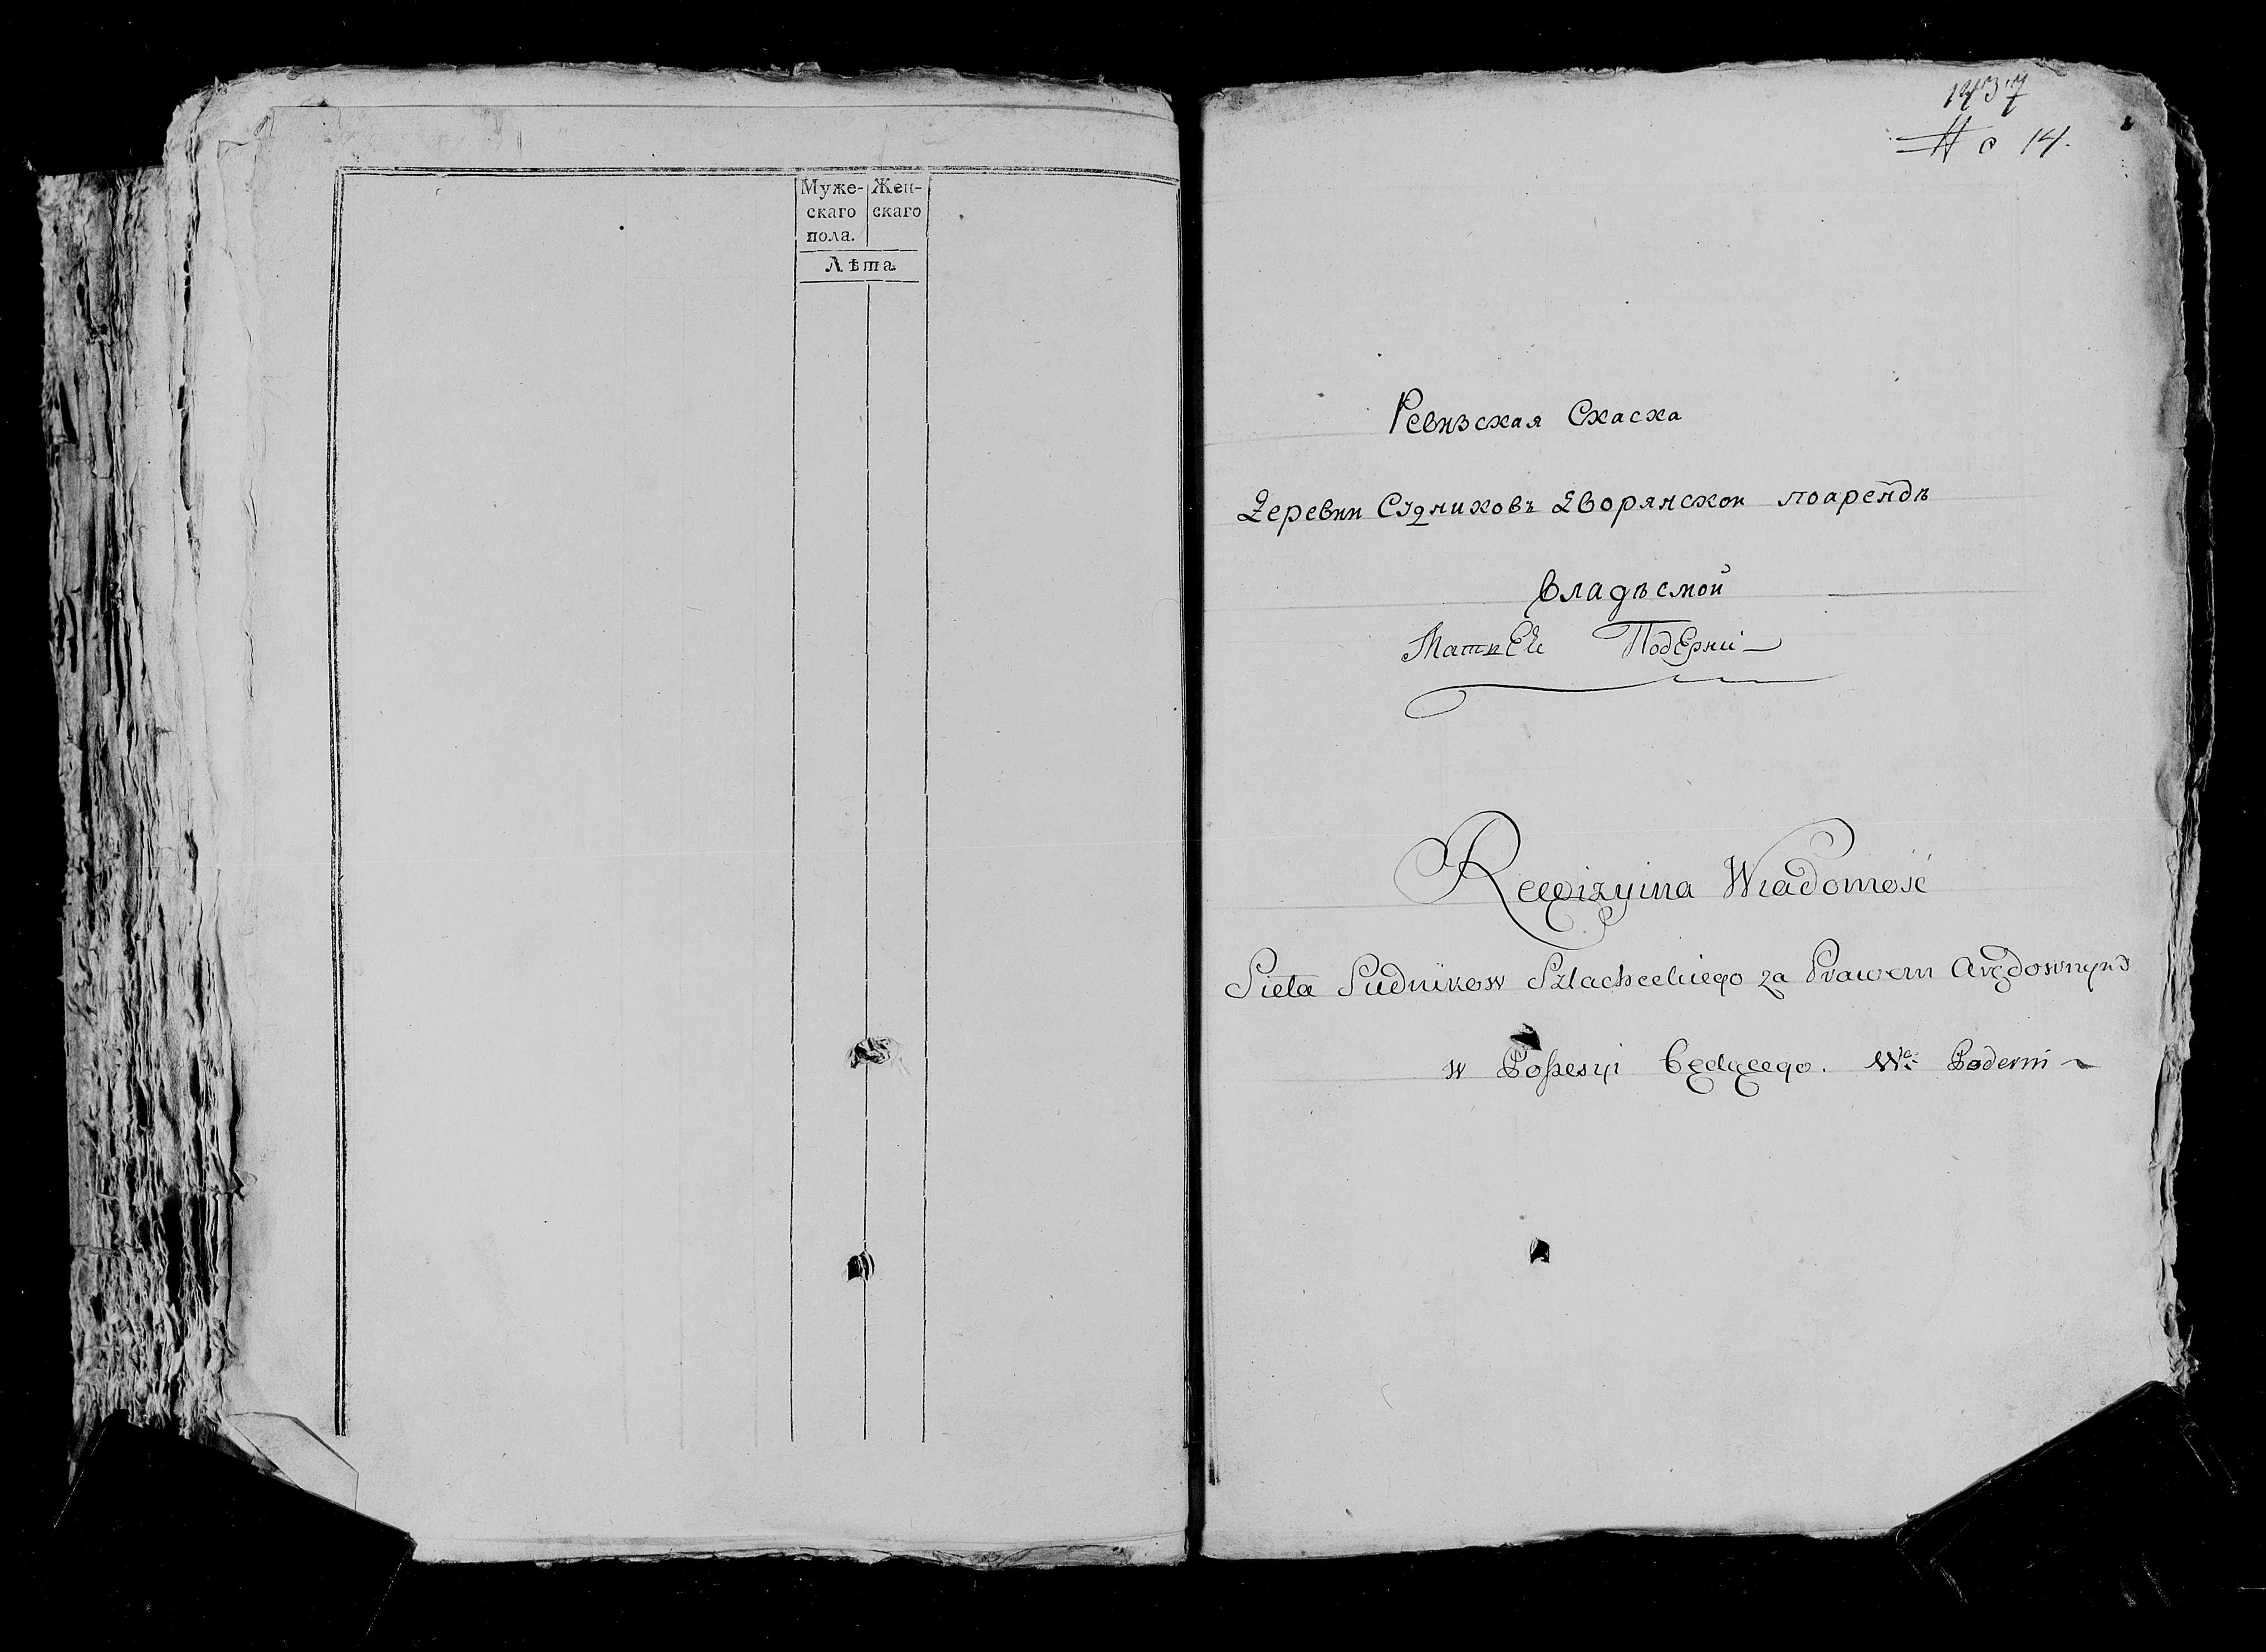 Муже- Жен-
скаго скаго
пола.
Лѣта
1437
№ 14.
Ревизская Скаска
Деревни Судниковъ Дворянской поарендѣ
владѣемой
Матвей Подерни
Rewizyina Wiadomość
Sieła Sudnikow Szlacheckiego za Prawem Arędownym
w Possesyi będącego. Wo: Poderni